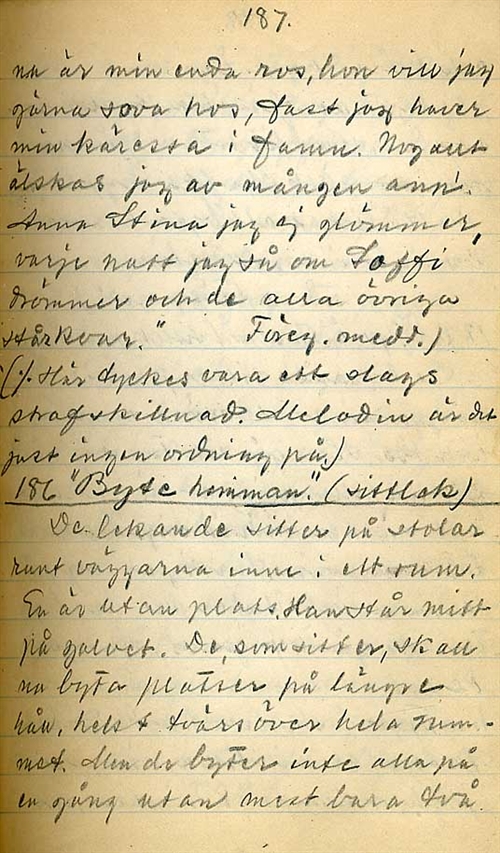 187.
na är min enda ros, hon vill jag
gärna sova hos, fast jag haver
min käresta i famn. Nog
älskas jag av mången ann'.
Anna Stina jag ej glömmer,
varje natt jag så om Soffi
drömmer och de alla övriga
står kvar." Föreg. medd.)
(/. Här tyckes vara ett slags
strofskillnad. Melodin är det
just ingen ordning på.)
186 "Byte hemman". (sittlek)
De lekande sitter på stolar
runt väggarna inne i ett rum.
En är utan plats. Han står mitt
på golvet. De, som sitter, skall
nu byta platser på längre
håll, helst tvärs över hela rum-
met. Men de byter inte alla på
en gång utan mest bara två.